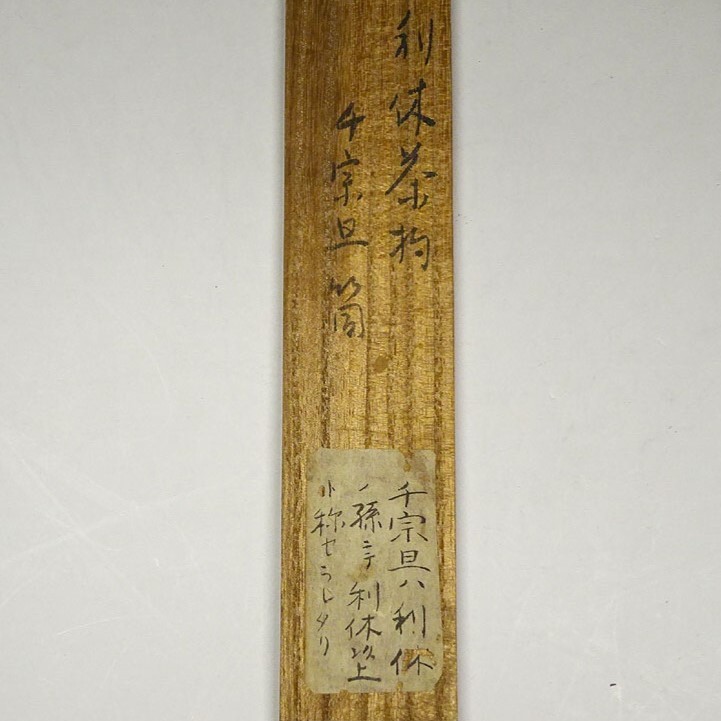 利休茶杓
千宗旦筒
千宗旦ハ利休
ノ孫ニテ利休以上
ト称セラレタリ